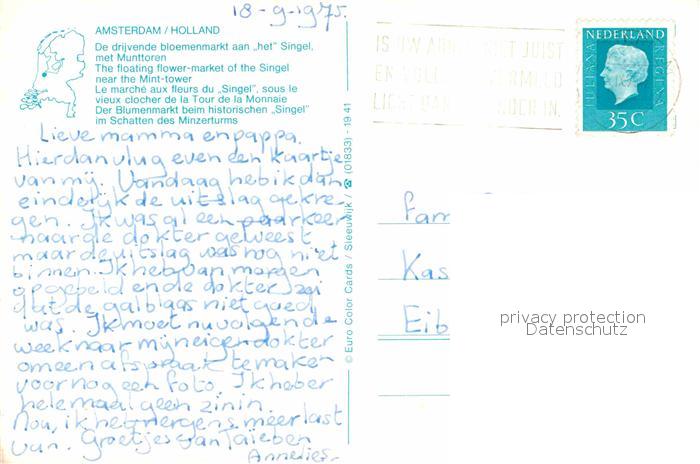 18-9-1975.
AMSTERDAM / HOLLAND
De drijvende bloemenmarkt aan „het” Singel,
met Munttoren
The floating flower-market of the Singel
near the Mint-tower
Le marché aux fleurs du „Singel”, sous le
vieux clocher de la Tour de la Monnaie
Der Blumenmarkt beim historischen „Singel”
im Schatten des Minzerturms
Lieve mamma en pappa.
Hier dan vlug even een kaartje
van mij. Vandaag heb ik dan
eindelijk de uitslag gekre-
gen. Ik was al een paar keer
naar de dokter geweest
maar de uitslag was nog niet
binnen. Ik heb van morgen
opgebeld en de dokter zei
dat de galblaas niet goed
was. Ik moet nu volgende
week naar mijn eigen dokter
om een afspraak te maken
voor nog een foto. Ik heb er
helemaal geen zin in.
Nou, ik heb nergens meer last
van. Groetjes van
Annelies-
© Euro Color Cards / Sleeuwijk / ☎ (01833) - 19 41
IS UW ADRES NIET JUIST
EN VOLLEDIG VERMELD
LICHT DAN AFZENDER IN.
NEDERLAND
JULIANA REGINA
35 C
Fam
Kas
Eib
privacy protection
Datenschutz